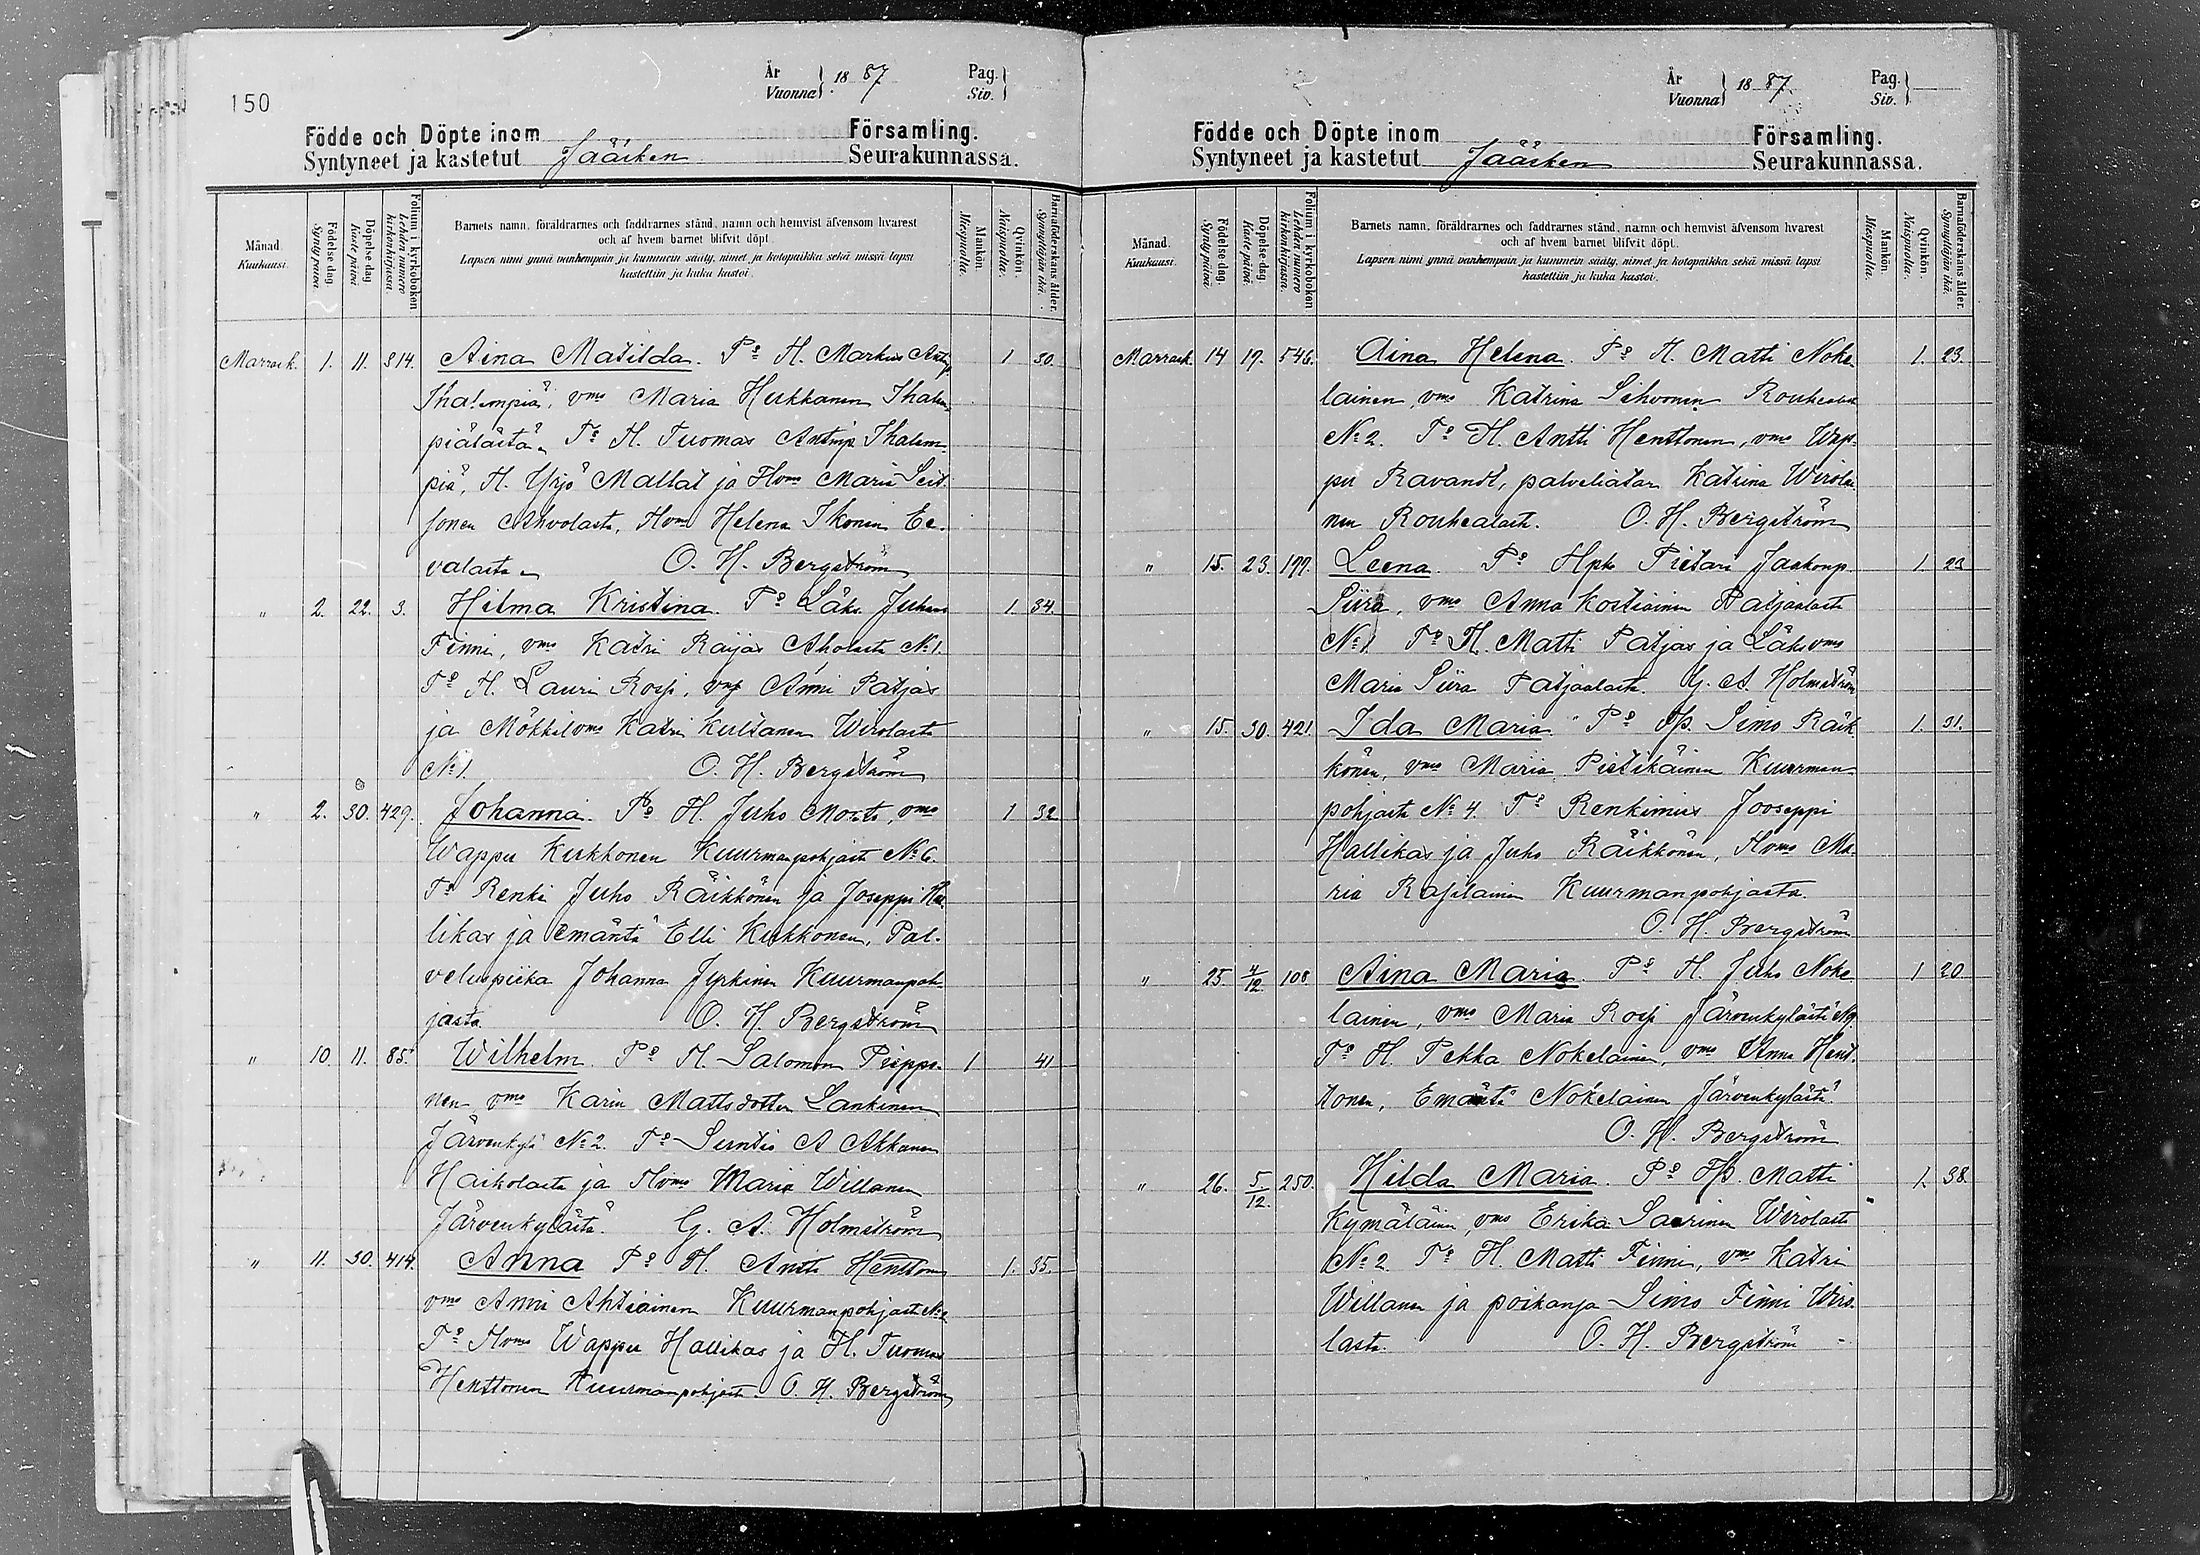 150
År
Vuonna 1887
Pag.
Siv.
Födde och Döpte inom Församling.
Syntyneet ja kastetut Jääsken Seurakunnassa.
Månad.
Kuukausi.
Födelse dag.
Synty päivä.
Döpelse dag
Kaste päivä
Folium i kyrkoboken
Lehden numero kirkonkirjassa.
Barnets namn, föräldrarnes och faddrarnes stånd, namn och hemvist äfvensom hvarest
och af hvem barnet blifvit döpt.
Lapsen nimi ynnä vanhempain ja kummein sääty, nimet ja kotopaikka sekä missä lapsi
kastettiin ja kuka kastoi.
Mankön.
Miespuolia.
Qvinkön.
Naispuolia.
Barnaföderskans ålder.
Synnyttäjän ikä.
Marrask. 1. 11. 314. Aina Matilda. Vo H. Markus Antinp. 1 30.
Ihalempiä, vmo Maria Hukkanen Ihalem-
piälästä. To H. Tuomas Antinp. Ihalem-
piä, H. Yrjö Mallat ja Hvmo Maria Seit-
sonen Ahvolasta, Hvmo Helena Ikonen Ee-
valasta O. H. Bergström
" 2. 22. 3. Hilma Kristina. Vo Läks. Juhana 1. 34.
Finni, vmo Katri Raijas Aholasta No 1.
To H. Lauri Rossi, vmo Anni Patjas
ja Mökkilvmo Katri Kultanen Wirolasta
No 1. O. H. Bergström
" 2. 30. 429. Johanna. Vo H. Juho Monto, vmo 1 32
Wappu Kirkkonen Kuurmanpohjasta No 6.
To Renki Juho Räikkönen ja Joseppi Hal-
likas ja emäntä Elli Kirkkonen, Pal-
veluspiika Johanna Jyrkinen Kuurmanpoh-
jasta O. H. Bergström
" 10. 11. 85. Wilhelm. Vo H. Salomon Pieppo- 1 41
nen vmo Karin Mattsdotter Lankinen
Järvenkylä No 2. To Suntio A Akkanen
Haikolasta ja Hvmo Maria Willanen
Järvenkylästä. G. A. Holmström
" 11. 30. 414. Anna Vo H. Antti Henttonen 1. 35.
vmo Anni Ahtiainen Kuurmanpohjasta No 2
To Hvmo Wappu Hallikas ja H. Tuomas
Henttonen Kuurmanpohjasta O. H. Bergström
År
Vuonna 1887
Pag.
Siv.
Födde och Döpte inom Församling.
Syntyneet ja kastetut Jääsken Seurakunnassa.
Månad.
Kuukausi.
Födelse dag.
Synty päivä.
Döpelse-dag
Kaste päivä.
Folium i kyrkoboken
Lehden numero kirkonkirjassa.
Barnets namn, föräldrarnes och faddrarnes stånd, namn och hemvist äfvensom hvarest
och af hvem barnet blifvit döpt.
Lapsen nimi ynnä vanhempain ja kummein sääty, nimet ja kotopaikka sekä missä lapsi
kastettiin ja kuka kastoi.
Mankön.
Miespuolia.
Qvinkön.
Naispuolia.
Barnaföderskans ålder.
Synnyttäjän ikä.
Marrask. 14 19. 546. Aina Helena. Vo H. Matti Noke- 1. 23.
lainen, vmo Katrina Sihvonen Rouhealast
No 2. To H. Antti Henttonen, vmo Wap-
pu Ravandt, palveliatar Katrina Wirolai-
nen Rouhealast. O. H. Bergström
" 15. 23. 199. Leena. Vo Hpko Pietari Jaakonp. 1 23
Siira, vmo Anna Kostiainen Patjaalasta
No 1. To H. Matti Patjas ja Läksvmo
Maria Siira Patjaalasta. G. A. Holmström
" 15. 30. 421. Ida Maria Vo Tp. Simo Räik- 1. 31.
könen, vmo Maria Pietikäinen Kuurman-
pohjasta No 4. To Renkimies Jooseppi
Hallikas ja Juho Räikkönen, Hvmo Ma-
ria Rasilainen Kuurmanpohjasta.
O. H. Bergström
" 25. 4/12. 108. Aina Maria Vo H. Juho Noke- 1 20
lainen, vmo Maria Rossi Järvenkylästä No 9.
To H. Pekka Nokelainen, vmo Anna Hent-
tonen, Emäntä Nokelainen Järvenkylästä
O. H. Bergström
" 26. 5/12. 250. Hilda Maria. Vo Tp. Matti 1. 38
Kymäläinen, vmo Erika Saarinen Wirolasta
No 2. To H. Matti Finni, vmo Katri
Willanen ja poikanja Simo Finni Wiro-
lasta. O. H. Bergström